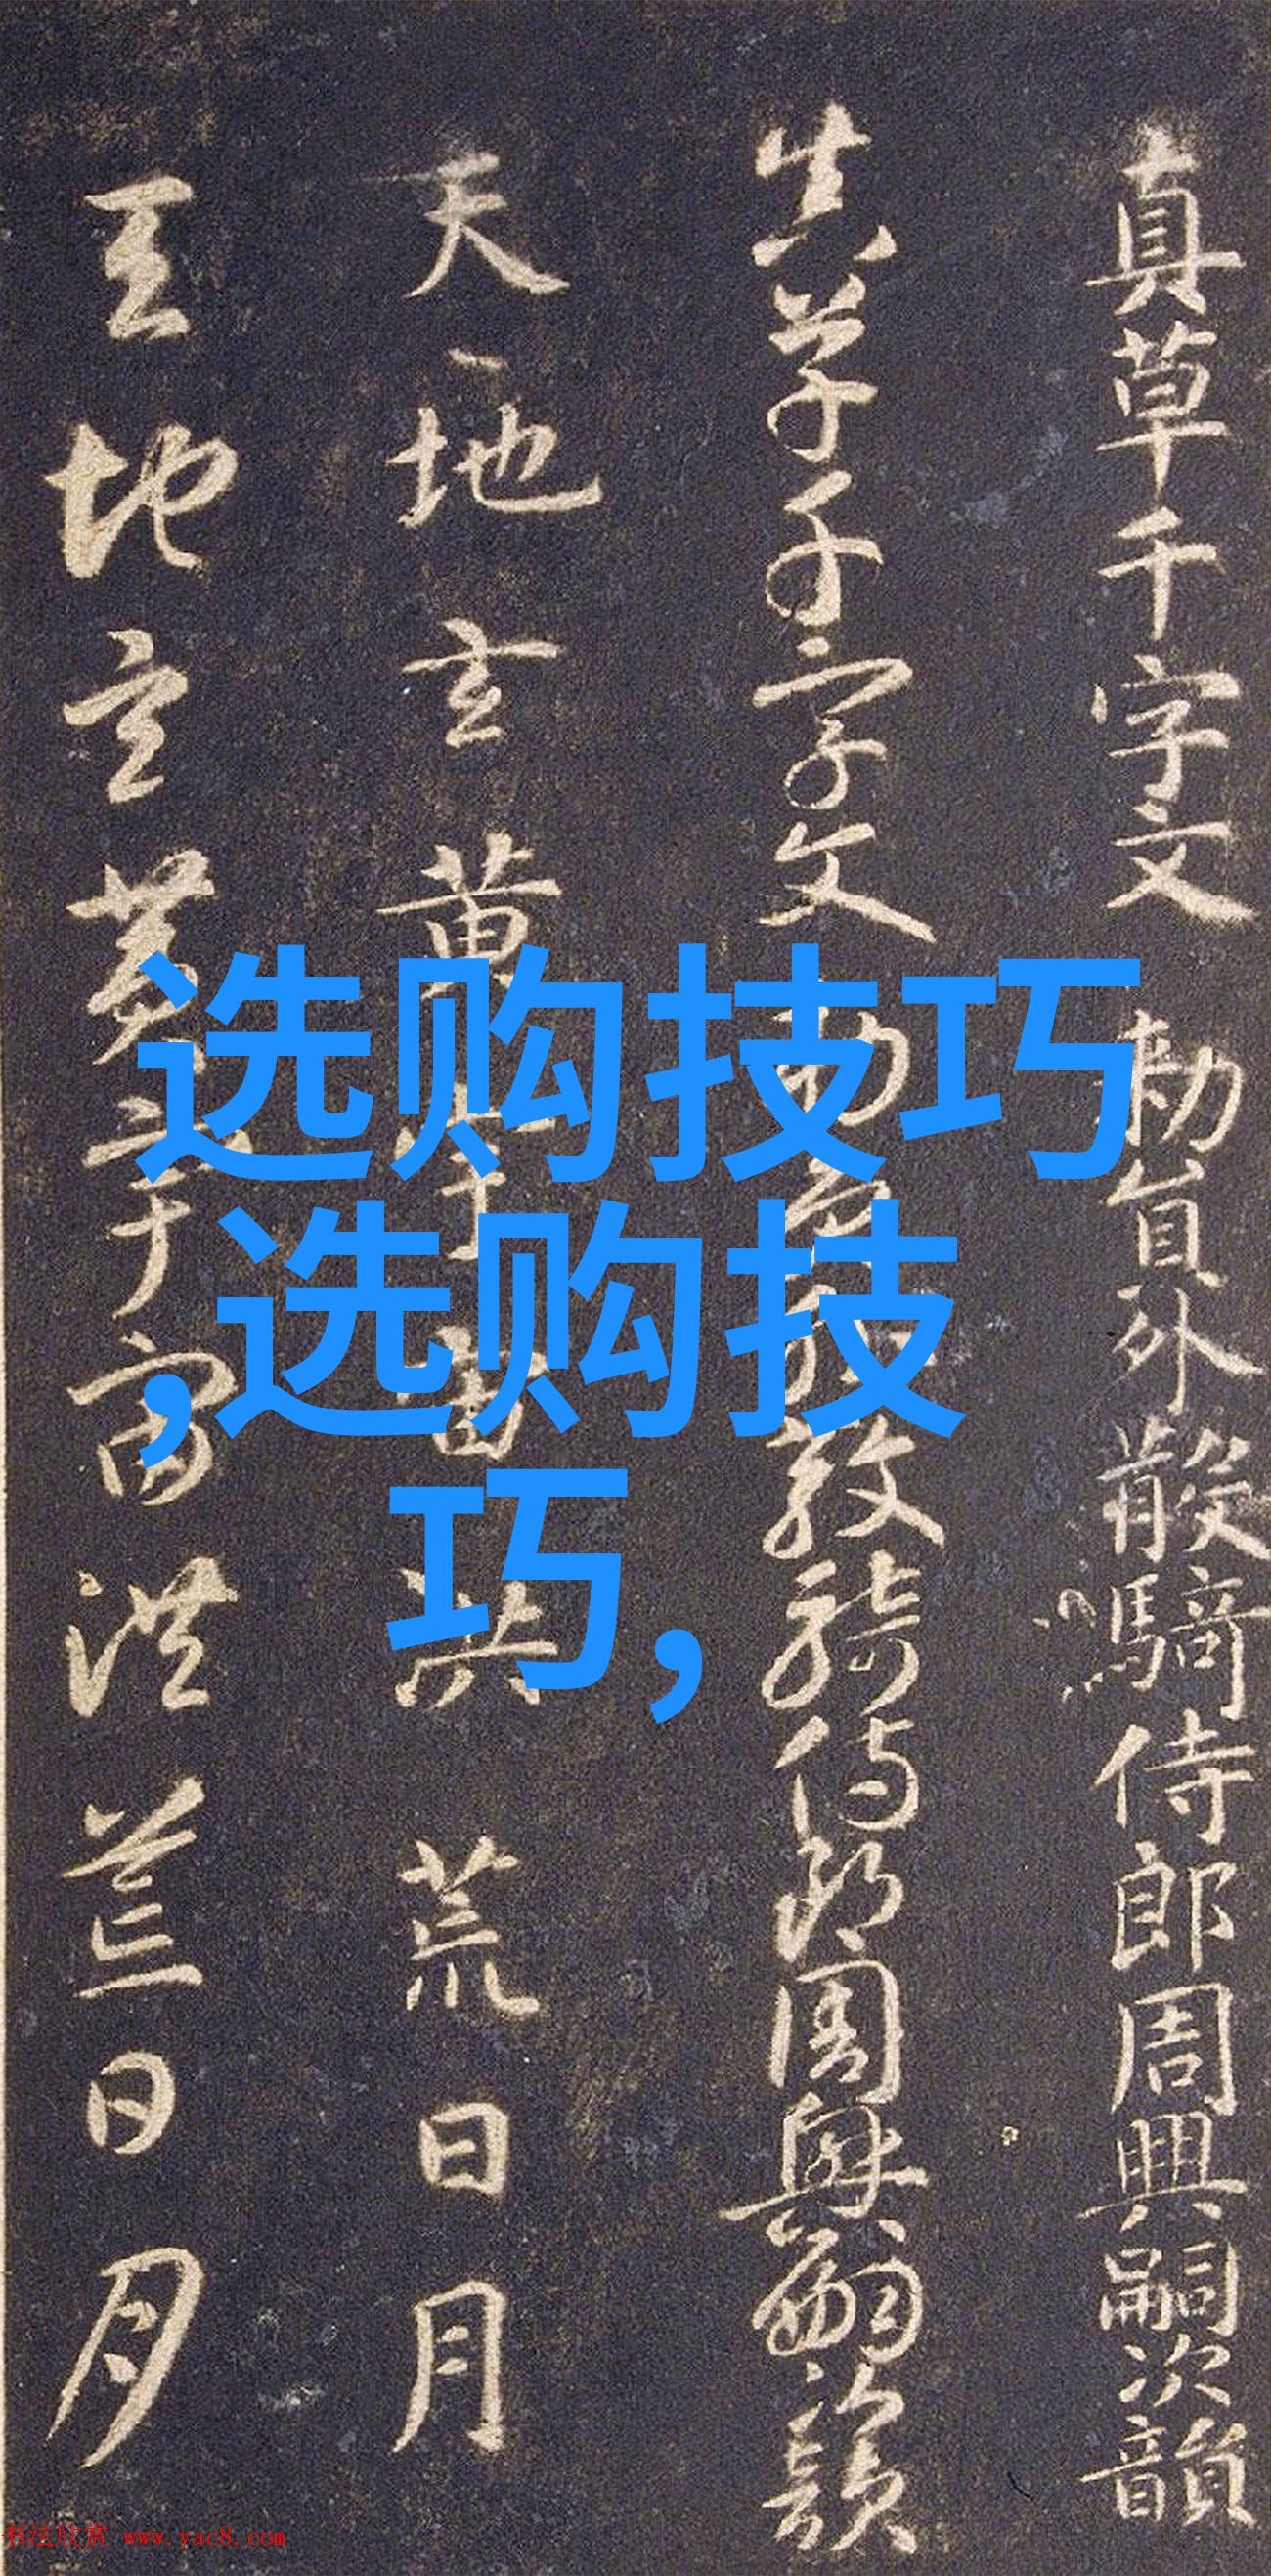 真草千字文 勅員外散騎侍郎周興嗣次韻
真草千字文 勅員外散騎侍郎周興嗣次韻
天地玄黄宇宙洪荒日月
天地玄黄宇宙洪荒日月
选购技巧
,选购技
巧,
书法欣赏 www.yac8.com